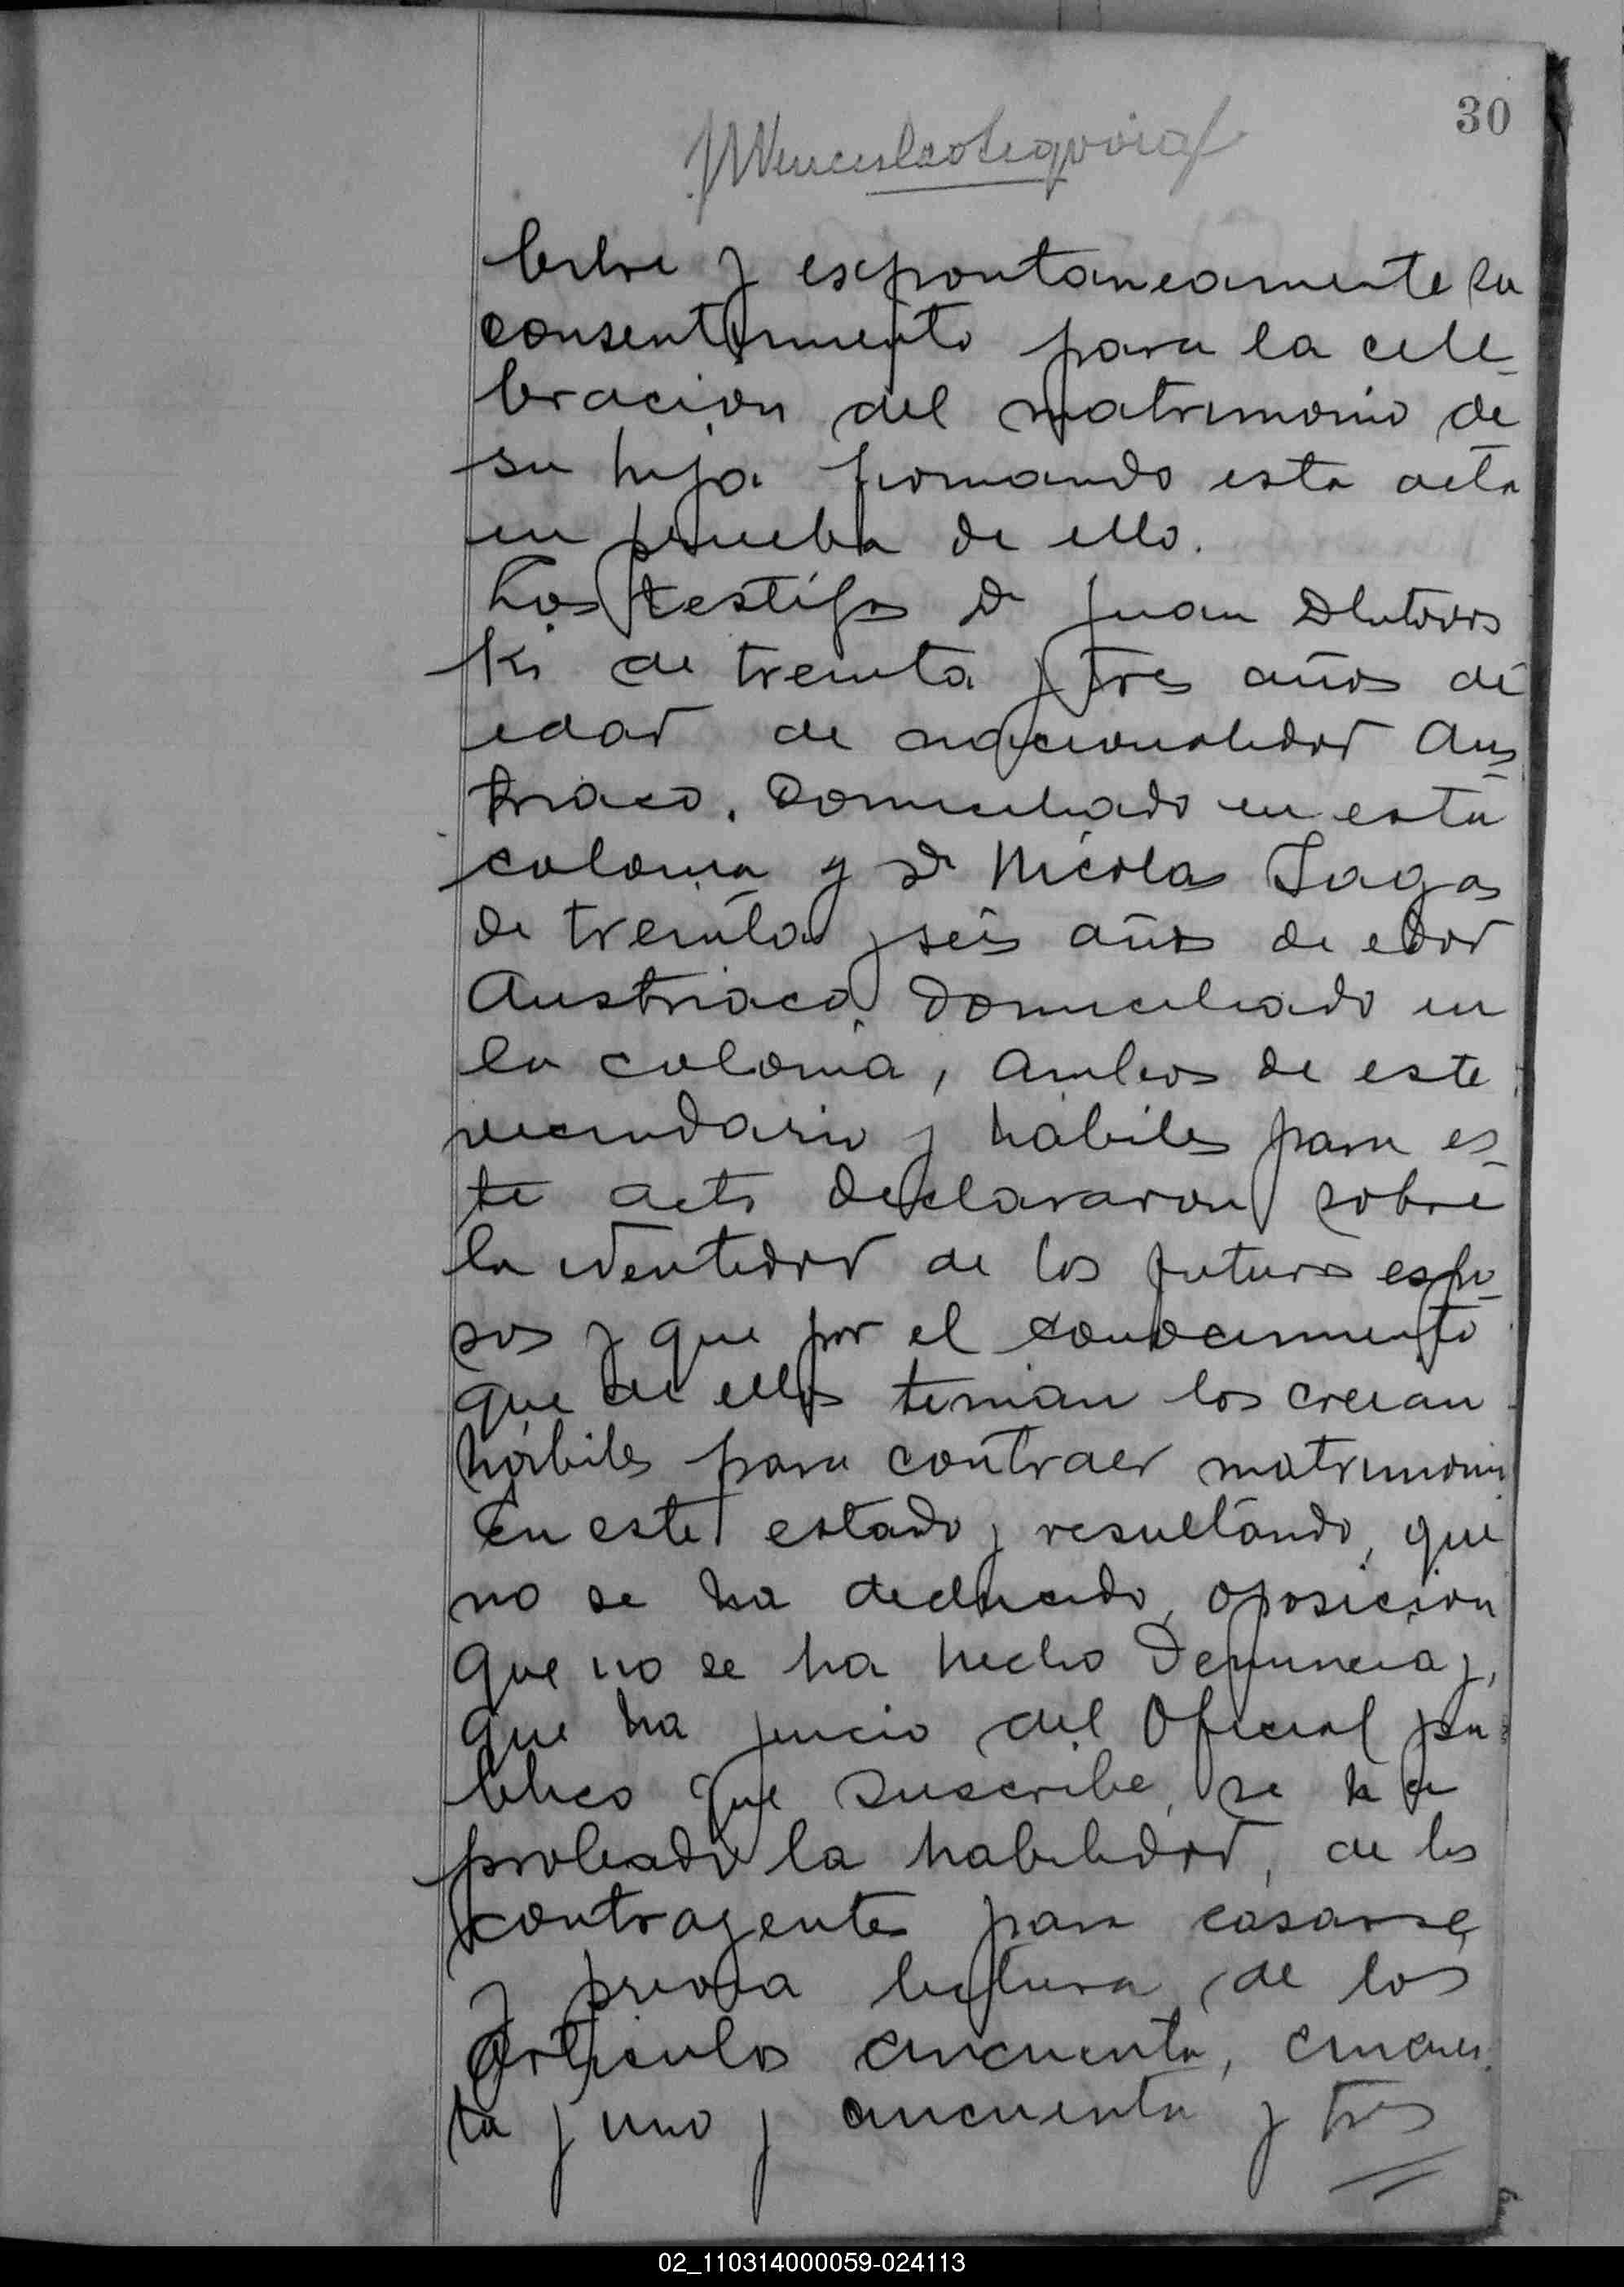 30
libre y espontaneamente su
consentimiento para la cele-
bracion del matrimonio de
su hija firmando esta acta
en prueba de ello.
Los testigos Dn Juan Dlutows
ki de treinta y tres años de
edad de nacionalidad Aus-
triaco. Domiciliado en esta
colonia y Dn Nicolas Sagas
de treinta y seis años de edad
Austriaco, Domiciliado en
la colonia, ambos de este
vecindario y hábiles para es-
te acto declararon sobre
la identidad de los futuros espo-
sos y que por el conocimiento
que de ellos tenian los creian
hábiles para contraer matrimonio
En este estado y resultando, que
no se ha deducido, oposicion
que no se ha hecho Denuncia y,
que ha juicio del Oficial pu
blico que suscribe, se ha
probado la habilidad, de los
contrayentes para casarse,
y previa lectura de los
articulos cincuenta, cincuen
ta y uno y cincuenta y tres
02_110314000059-024113